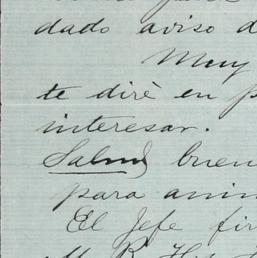 dado aviso d
Muy
te diré en p
interesar.
Salud buen
para anim
El Jefe fir